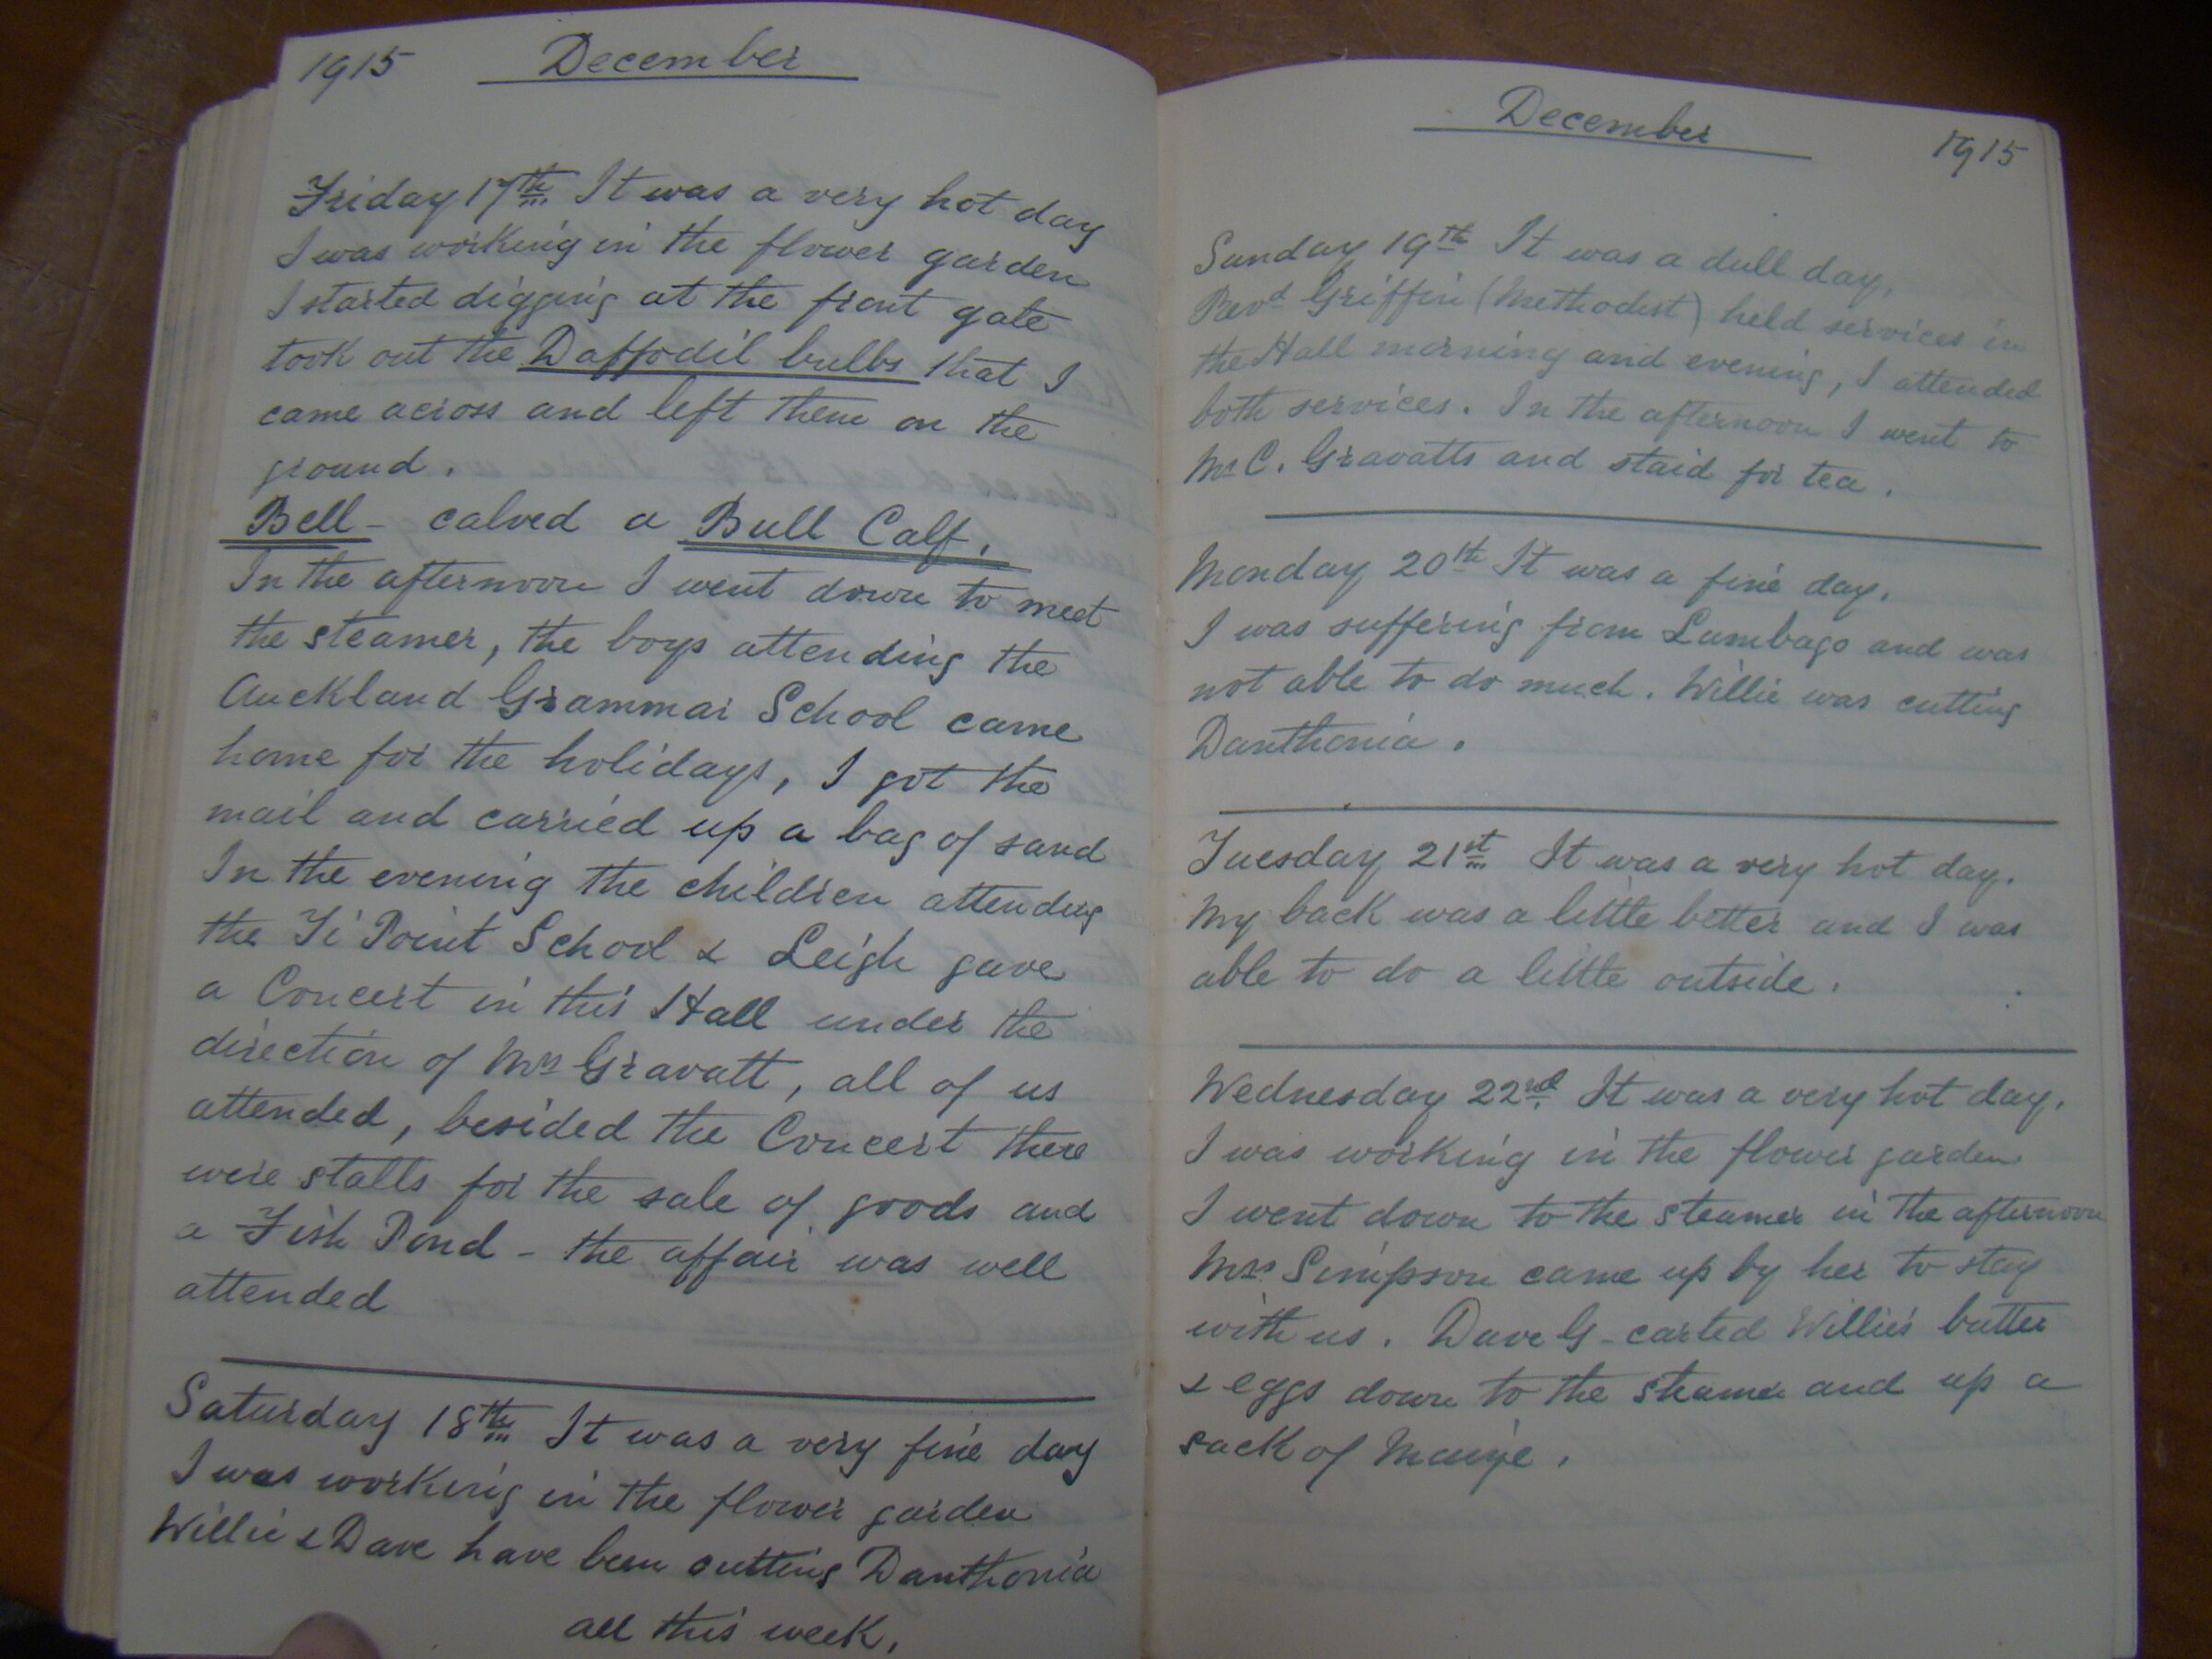 1915 December
Friday 17th It was a very hot day
I was working in the flower garden
I started digging at the front gate
took out the Daffodil bulbs that I
came across and left them on the
ground.
Bell - calved a Bull Calf.
In the afternoon I went down to meet
the steamer, the boys attending the
Auckland Grammar School came
home for the holidays, I got the
mail and carried up a bag of sand
In the evening the children attending
the Ti Point School & Leigh gave
a Concert in this Hall under the
direction of Mrs Gravatt, all of us
attended, besided the Concert there
were stalls for the sale of goods and
a Fish Pond - the affair was well
attended
Saturday 18th It was a very fine day
I was working in the flower garden
Willie & Dave have been cutting Danthonia
all this week.
December 1915
Sunday 19th It was a dull day,
Revd Griffin (Methodist) held services in
the Hall morning and evening, I attended
both services. In the afternoon I went to
Mr C. Gravatts and staid for tea.
Monday 20th It was a fine day.
I was suffering from Lumbago and was
not able to do much. Willie was cutting
Danthonia.
Tuesday 21st It was a very hot day.
My back was a little better and I was
able to do a little outside.
Wednesday 22nd It was a very hot day.
I was working in the flower garden
I went down to the steamer in the afternoon
Mrs Simpson came up by her to stay
with us. Dave G - carted Willie's butter
& eggs down to the steamer and up a
sack of Maize.